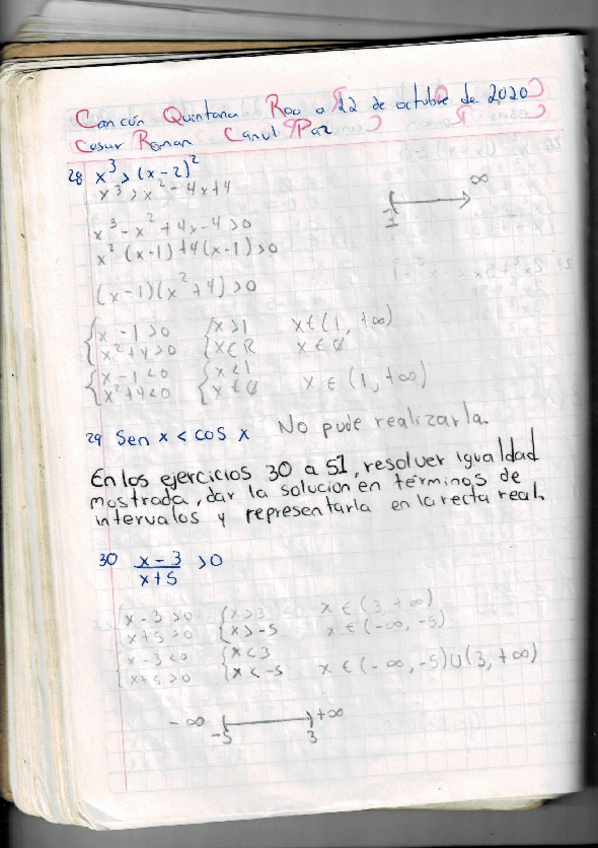 Cancún Quintana Roo a 22 de octubre de 2020
Cesar Roman Canul Paz
28 x³ > (x-2)²
x³ > x² - 4x+4
∞
x³ - x² + 4x - 4 > 0
x² (x-1) + 4(x-1) > 0
(x-1)(x²+4) > 0
{x - 1 > 0 {x > 1 x ∈ (1, +∞)
{x²+4 > 0 {x ∈ R x ∈ ∅
{x - 1 < 0 {x < 1
{x²+4 < 0 {x ∈ ∅ x ∈ (1, +∞)
29 Sen x < cos x No pude realizarla.
En los ejercicios 30 a 51, resolver igualdad
mostrada, dar la solucion en términos de
intervalos y representarla en la recta real.
30 x-3/x+5 > 0
{x-3 > 0 {x > 3 x ∈ (3, +∞)
{x+5 > 0 {x > -5 x ∈ (-∞, -5)
{x-3 < 0 {x < 3
{x+5 > 0 {x < -5 x ∈ (-∞, -5) ∪ (3, +∞)
-∞ +∞
-5 3